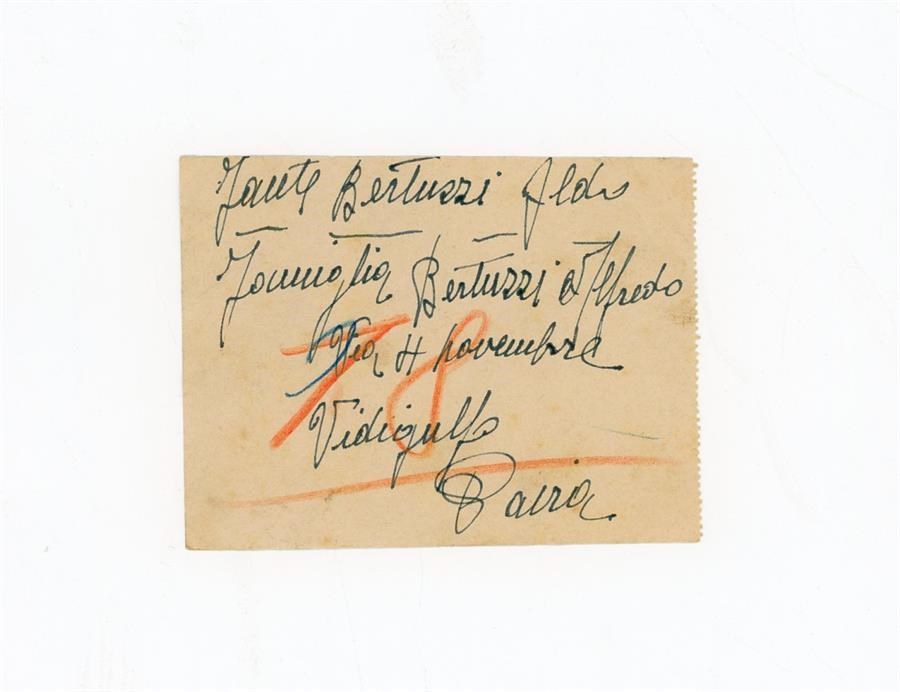 Fante Bertuzzi Aldo
Famiglia Bertuzzi Alfredo
Via 4 novembre
78
Vidigulfo
Pavia